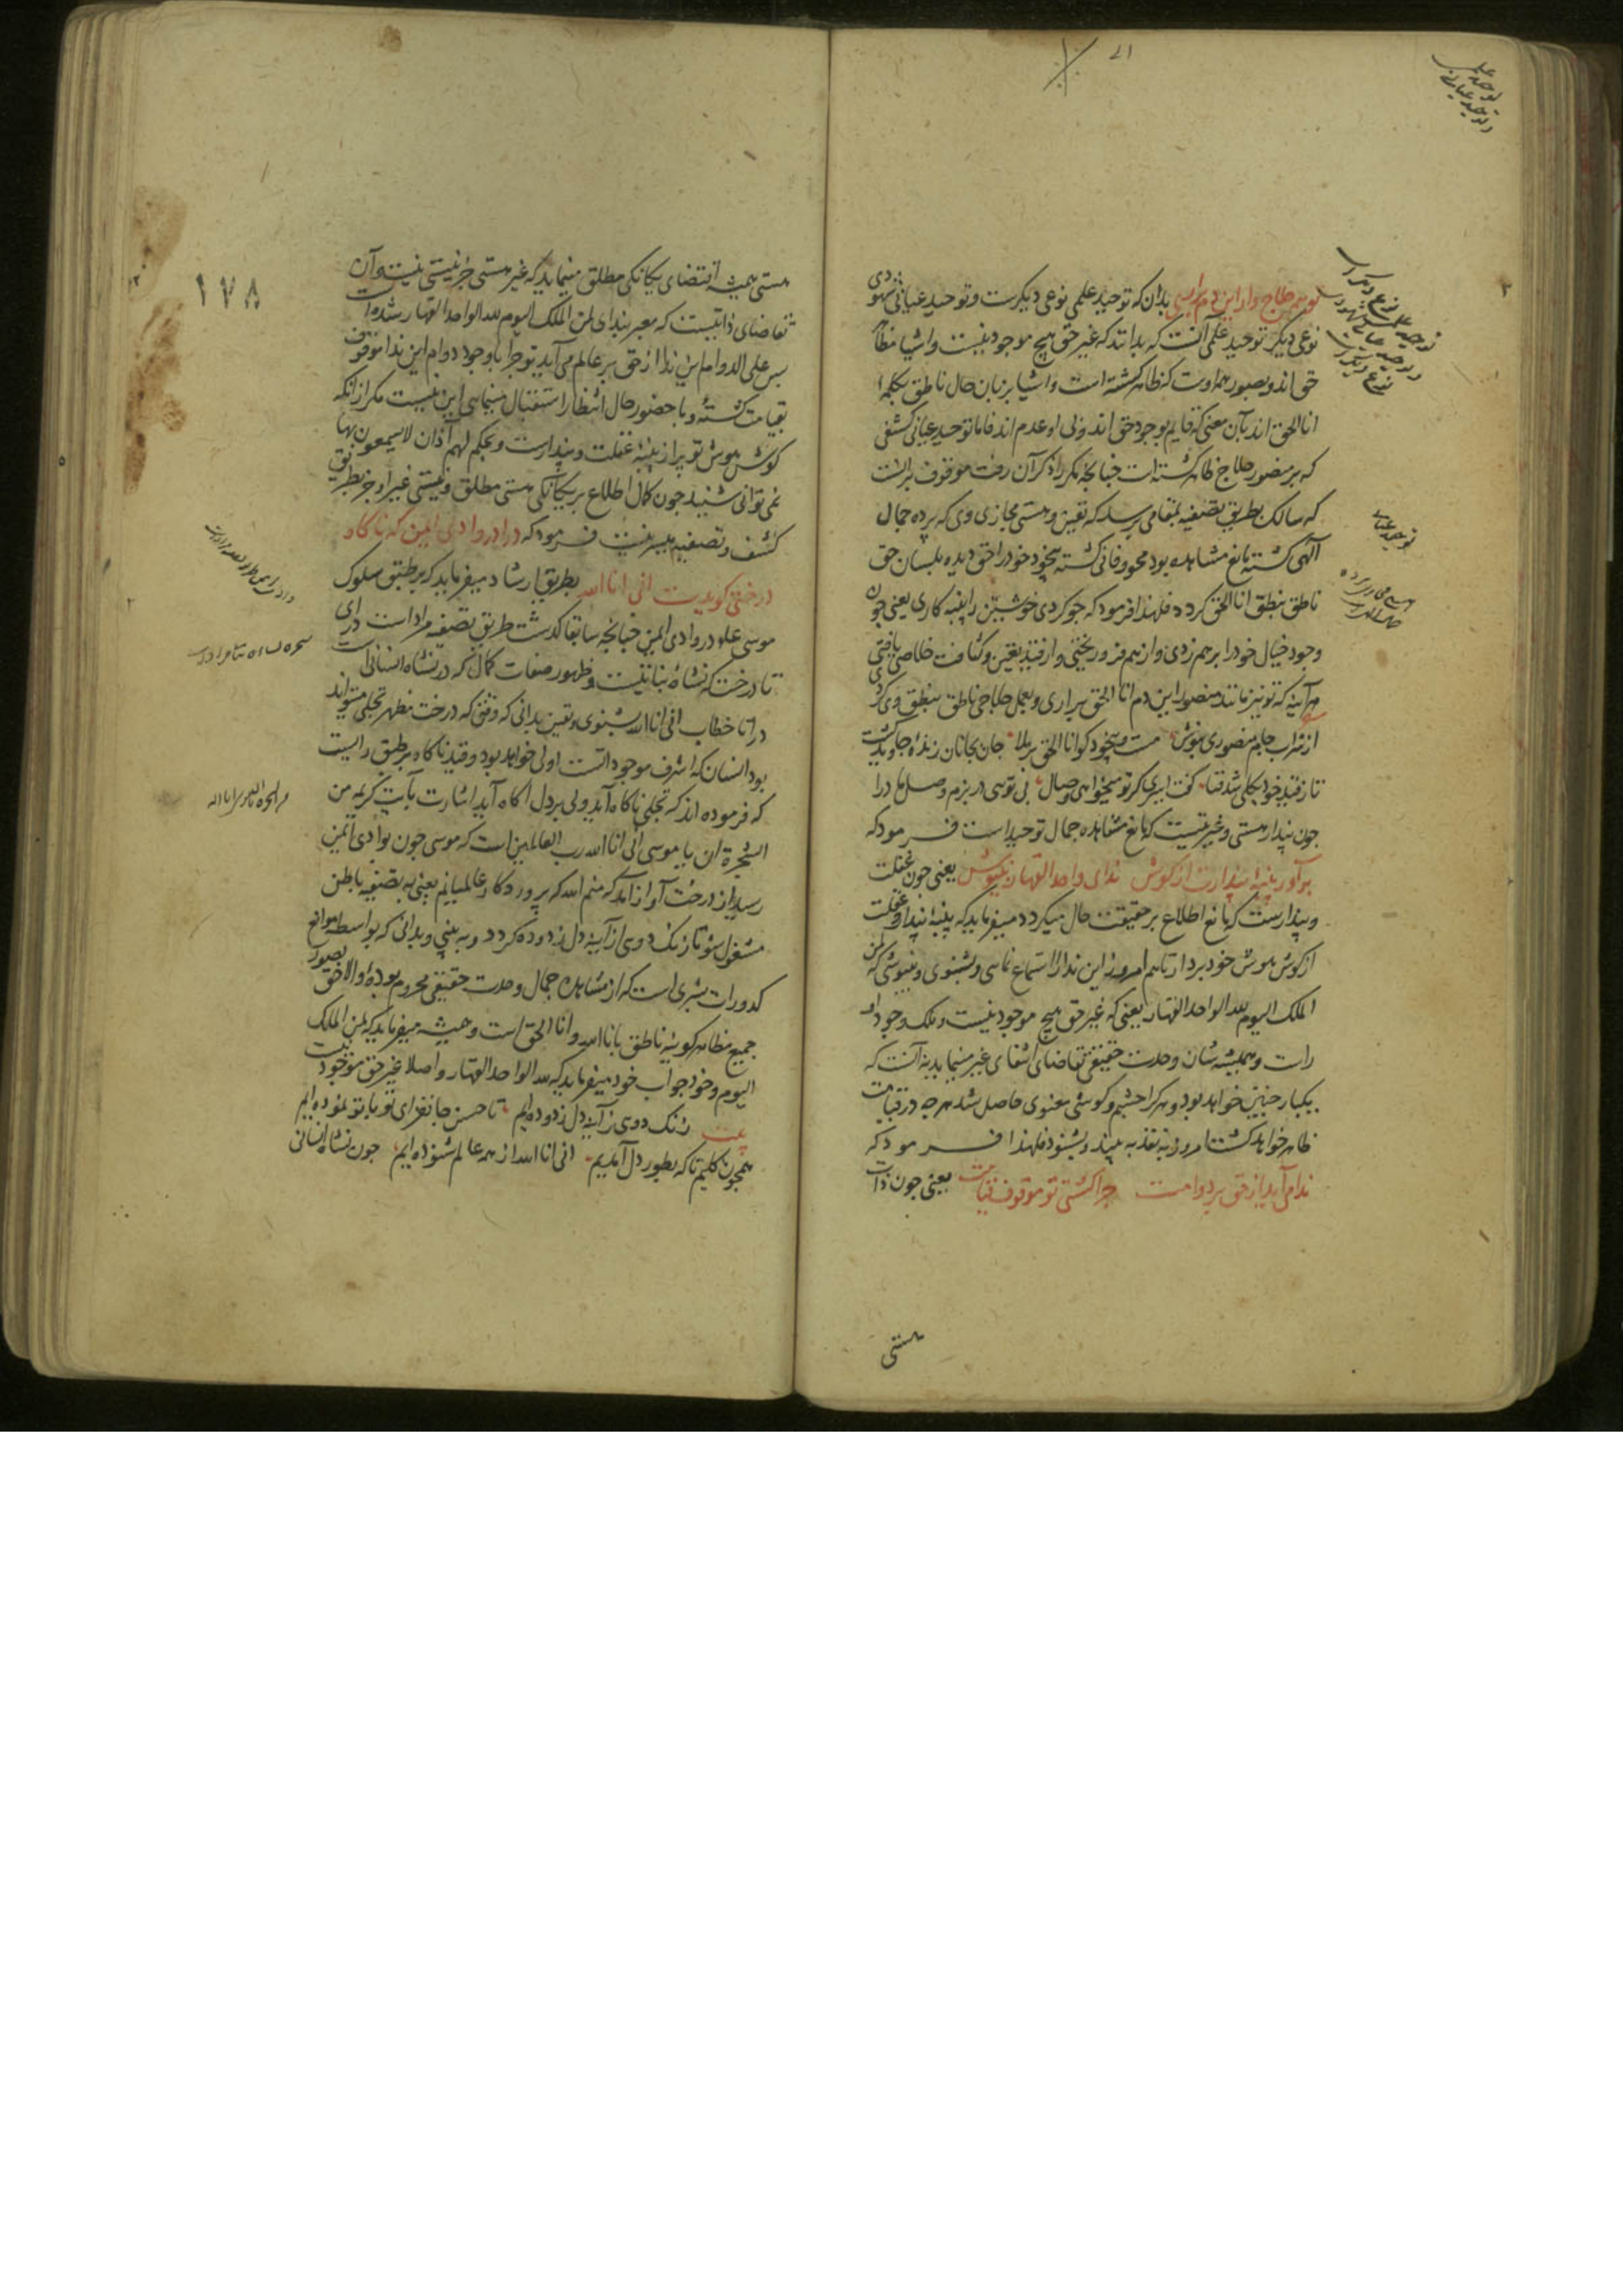 تو هم حلاج وار این دم برآری بدان که توحید علمی نوعی دیگرست و توحید عیانی شهودی
نوعی دیگر توحید علمی آنست که بدانند که غیر حق هیچ موجود نیست و اشیا مظاهر
حق اند و بصور همه اوست که ظاهر گشته است و اشیا بزبان حال ناطق بکلمه
انا الحق اند بآن معنی که قایم بوجود حق اند و بی او عدم اند فاما توحید عیانی کشفی
که بر منصور حلاج ظاهر گشته است چنانچه مکرر ذکر آن رفت موقوف برانست
که سالک بطریق تصفیه بمقامی برسد که تعین و هستی مجازی وی که پرده جمال
الهی گشته مانع مشاهده بود محو و فانی گشته بیخود خود را حق دیده بلسان حق
ناطق بنطق انا الحق گردد فلهذا فرمود که چو کردی خویشتن را پنبه کاری یعنی چون
وجود خیال خود را برهم زدی و از هم فرو ریختی و از قید تعین و کثافت خلاصی یافتی
هر آینه که تو نیز مانند منصور این دم انا الحق برآری و بعمل حلاجی ناطق بنطق وی گردی
از شراب جام منصوری بنوش مست و بیخود کو انا الحق بر ملا جان بجانان زنده جاوید گشت
تا ز قید خود بکلی شد فنا گفت اسیری گر تو میخواهی وصال بی تویی در بزم وصل ما درا
چون پندار هستی و غیریت که مانع مشاهده جمال توحید است فرمود که
برآور پنبه پندارت از گوش ندای واحد القهار بنیوش یعنی چون غفلت
و پندارست که مانع اطلاع بر حقیقت حال میگردد میفرماید که پنبه پندار و غفلت
از گوش هوش خود بردار تا هم امروز این ندا را استماع نمایی و بشنوی و بنیوشی که لمن
الملک الیوم لله الواحد القهار یعنی که غیر حق هیچ موجود نیست و ملک وجود او
راست و همیشه شان وحدت حقیقی تقاضای انتفای غیر مینماید نه آنست که
بیکبار چنین خواهد بود و هر کرا چشم و گوش معنوی حاصل شد هر چه در قیامت
ظاهر خواهد گشت امروز به نقد به بیند و بشنود فلهذا فرمود که
ندا می آید از حق بر دوامت چرا گشتی تو موقوف قیامت یعنی چون ذات
هستی
هستی همیشه اقتضای یگانگی مطلق مینماید که غیر هستی جز نیستی نیست و آن
تقاضای ذاتیست که معبر بندای لمن الملک الیوم لله الواحد القهار شده است
پس علی الدوام این ندا از حق بر عالم می آید تو چرا با وجود دوام این ندا موقوف
بقیامت گشته و با حضور حال انتظار استقبال مینمایی این نیست مگر از آنکه
گوش هوش تو پر از پنبه غفلت و پندارست و بحکم لهم آذان لا یسمعون بها
نمی توانی شنید چون کمال اطلاع بر یگانگی هستی مطلق و نیستی غیر او جز بطریق
کشف و تصفیه میسر نیست فرمود که درا در وادی ایمن که ناگاه
درختی گویدت انی انا الله بطریق ارشاد میفرماید که بر طبق سلوک
موسی علم در وادی ایمن چنانچه سابقا گذشت طریق تصفیه مراد است درآی
تا درخت که نشاه نباتیست و ظهور صفات کمال که در نشاه انسانی است
در آنجا خطاب انی انا الله بشنوی و تعین بدانی که وقتی که درخت مظهر تجلی میتواند
بود انسان که اشرف موجوداتست اولی خواهد بود و قید ناگاه بر طبق راییست
که فرموده اند که تجلی ناگاه آید ولی بر دل آگاه آید اشارت بآیت کریمه من
الشجرة ان یا موسی انی انا الله رب العالمین است که موسی چون بوادی ایمن
رسید از درخت آواز آمد که منم الله که پروردگار عالمیانم یعنی به تصفیه باطن
مشغول شو تا زنگ دوی از آینه دل زدوده گردد و به بینی و بدانی که بواسطه موانع
کدورات بشری است که از مشاهده جمال وحدت حقیقی محروم بوده و الا حق بصور
جمیع مظاهر کونیه ناطق بانا الله و انا الحق است و همیشه میفرماید که لمن الملک
الیوم و خود جواب خود میفرماید که لله الواحد القهار و اصلا غیر حق موجود نیست
بیت زنگ دوی ز آینه دل زدوده ایم تا حسن جانفزای تو با تو نموده ایم
همچون کلیم تا که بطور دل آمدیم انی انا الله از همه عالم شنوده ایم چون نشاه انسانی
۱۷۸